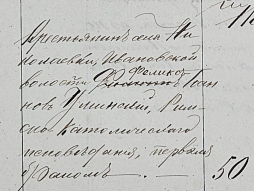 Крестьянинъ села Ни
колаевки, Ивановской
волости Феликсъ Іоан
новъ Улинскій, Рим
ско Католическаго
исповѣданія, первымъ
бракомъ. 50